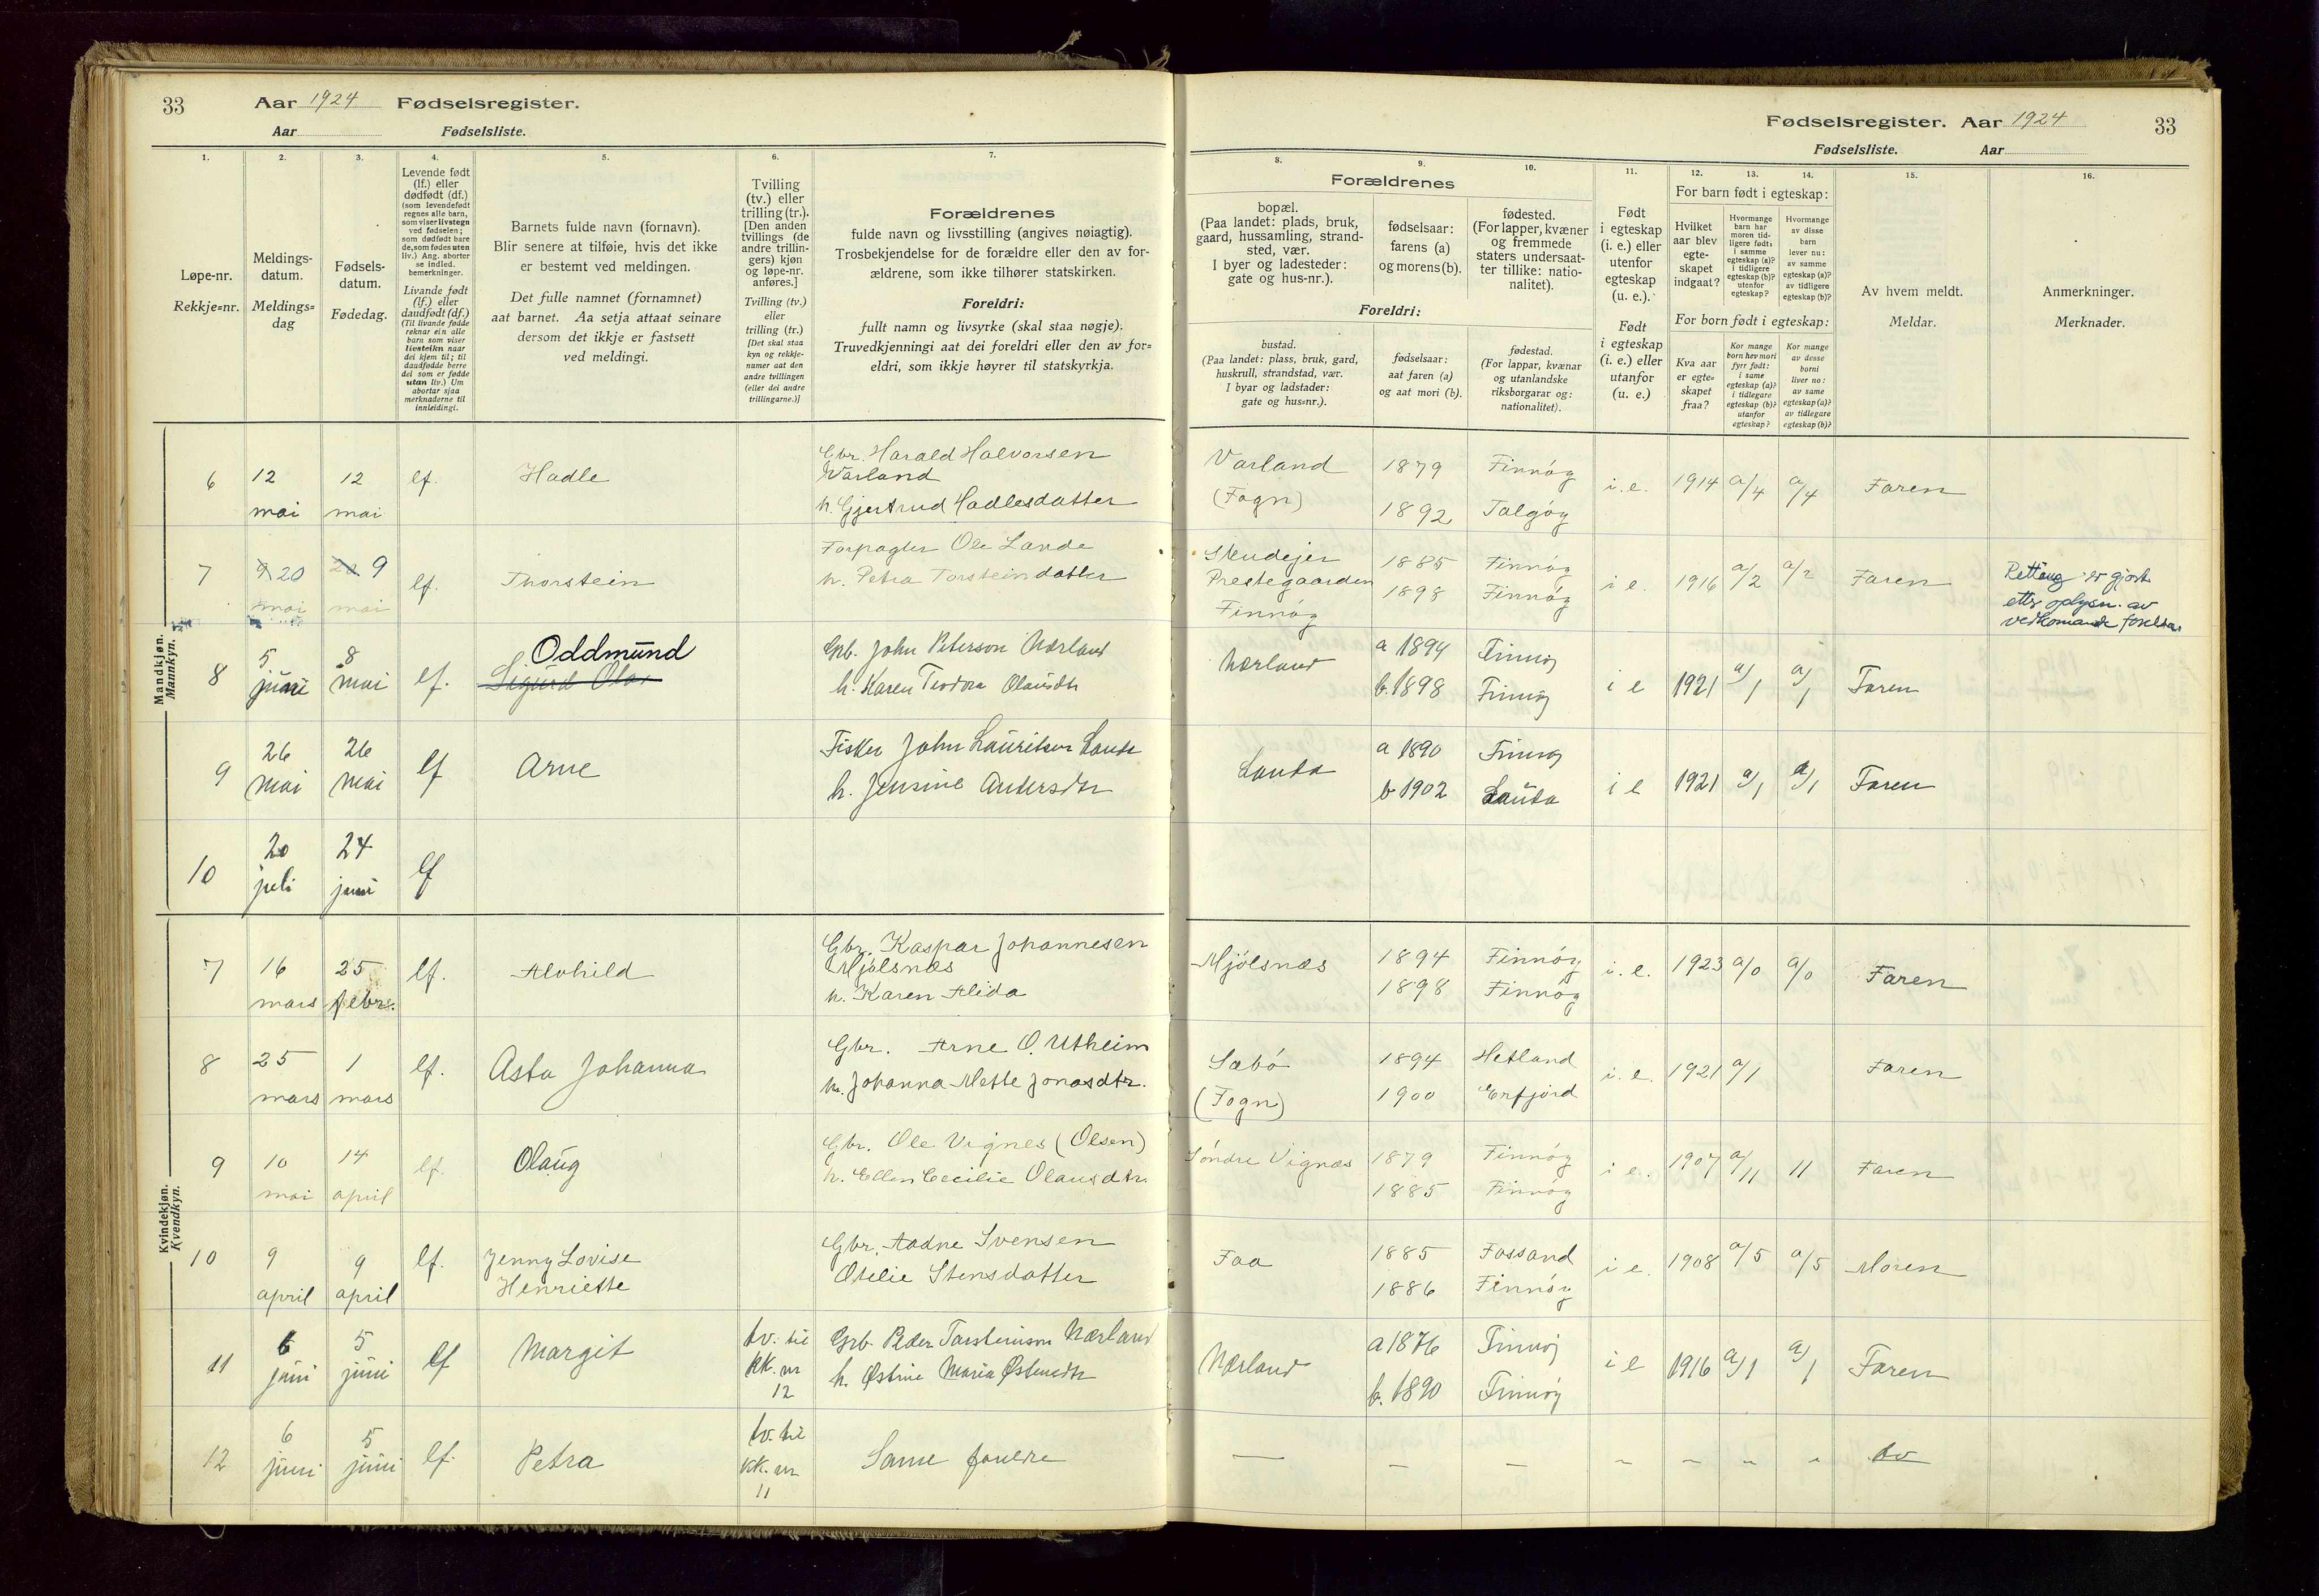 33 Aar 1924 Fødselsregister.
Aar Fødselsliste.
1. 2. 3. 4. 5. 6. 7.
Løpe-nr.
Rekkje=nr.
Meldings-
datum.
Meldings=
dag
Fødsels-
datum.
Fødedag.
Levende født
(lf.) eller
dødfødt (df.)
(som levendefødt
regnes alle barn,
som viser livstegn
ved fødselen;
som dødfødt bare
de, som fødes uten
liv.) Ang. aborter
se indled.
bemerkninger.
Livande født
(lf.) eller
daudfødt (df.)
(Til livande fødde
reknar ein alle
barn som viser
livsteikn naar
dei kjem til; til
daudfødde berre
dei som er fødde
utan liv.) Um
abortar sjaa
merknaderne til
innleidingi.
Barnets fulde navn (fornavn).
Blir senere at tilføie, hvis det ikke
er bestemt ved meldingen.
Det fulle namnet (fornamnet)
aat barnet. Aa setja attaat seinare
dersom det ikkje er fastsett
ved meldingi.
Tvilling
(tv.) eller
trilling (tr.).
[Den anden
tvillings (de
andre trillin-
gers) kjøn
og løpe-nr.
anføres.]
Tvilling (tv.)
eller
trilling (tr.)
[Det skal staa
kyn og rekkje-
numer aat den
andre tvillingen
(eller dei andre
trillingarne.)]
Forældrenes
fulde navn og livsstilling (angives nøiagtig).
Trosbekjendelse for de forældre eller den av for-
ældrene, som ikke tilhører statskirken.
Foreldri:
fullt namn og livsyrke (skal staa nøgje).
Truvedkjenningi aat dei foreldri eller den av for=
eldri, som ikkje høyrer til statskyrkja.
Mandkjøn.
Mannkyn.
6 12 12 lf. Hadle
mai mai
Gbr. Harald Halvorsen
Varland
h. Gjertrud Hadlesdatter
7 9 20 20 9 lf. Thorstein
mai mai
Forpagter Ole Lande
h. Petra Torsteindatter
8 5 8 lf. Oddmund
juni mai Sigurd Olav
Grb. John Peterson Nærland
h. Karen Teodora Olausdtr
9 26 26 lf Arne
mai mai
Fisker John Lauritsen Lauda
h. Jensine Andersdtr
10 20 24 lf
juli juni
Kvindekjøn.
Kvendkyn.
7 16 25 lf. Alvhild
mars febr.
Gbr. Kaspar Johannesen
Mjølsnæs
h. Karen Alida
8 25 1 lf. Asta Johanna
mars mars
Gbr. Arne O. Utheim
h. Johanna Mette Jonasdtr.
9 10 14 lf. Olaug
mai april
Gbr. Ole Vignes (Olsen)
h. Ellen Cecilie Olausdtr.
10 9 9 lf. Jenny Lovise
april april Henriette
Gbr. Aadne Svensen
Otelie Stensdatter
11 6 5 lf Margit tv. til
juni juni KK. nr
12
Grb. Peder Torsteinson Nærland
h. Østine Maria Østendtr
12 6 5 lf. Petra tv. til
juni juni KK. nr
11
Same foreldre
Fødselsregister. Aar 1924 33
Fødselsliste. Aar
8. 9. 10. 11. 12. 13. 14. 15. 16.
Forældrenes
bopæl.
(Paa landet: plads, bruk,
gaard, hussamling, strand-
sted, vær.
I byer og ladesteder:
gate og hus-nr.).
fødselsaar:
farens (a)
og morens (b).
fødested.
(For lapper, kvæner
og fremmede
staters undersaat-
ter tillike: natio-
nalitet).
Foreldri:
bustad.
(Paa landet: plass, bruk, gard,
huskrull, strandstad, vær.
I byar og ladstader:
gate og hus=nr.).
fødselsaar:
aat faren (a)
og aat mori (b).
fødestad.
(For lappar, kvænar
og utanlandske
riksborgarar og:
nationalitet).
Født
i egteskap
(i. e.) eller
utenfor
egteskap
(u. e.).
Født
i egteskap
(i. e.) eller
utanfor
(u. e.)
For barn født i egteskap:
Hvilket
aar blev
egte-
skapet
indgaat?
Hvormange
barn har
moren tid-
ligere født:
i samme
egteskap (a)?
i tidligere
egteskap (b)?
utenfor
egteskap?
Hvormange
av disse
barn
lever nu:
av samme
egteskap (a)?
av tidligere
egteskap (b)?
For born født i egteskap:
Kva aar
er egte=
skapet
fraa?
Kor mange
born hev mori
fyrr født:
i same
egteskap (a)?
i tidlegare
egteskap (b)?
utanfor
egteskap?
Kor mange
av desse
borni
liver no:
av same
egteskap (a)?
av tidlegare
egteskap (b)?
Av hvem meldt.
Meldar.
Anmerkninger.
Merknader.
Varland 1879 Finnöy i. e. 1914 a/4 a/4 Faren
(Fogn) 1892 Talgöy
Skudejer 1885 Finnöy i e 1916 a/2 a/2 Faren
Prestegaarden 1898 Finnöy
Finnöy
Retting er gjort
etter oplysn. av
vedkomande foreldre.
Nærland a 1894 Finnöy i e 1921 a/1 a/1 Faren
b. 1898 Finnöy
Lauda a 1890 Finnöy i e 1921 a/1 a/1 Faren
b 1902 Lauda
Mjölsnæs 1894 Finnöy i. e. 1923 a/0 a/0 Faren
1898 Finnöy
Sæbö 1894 Hetland i. e. 1921 a/1 Faren
(Fogn) 1900 Erfjord
Söndre Vignæs 1879 Finnöy i e. 1907 a/11 11 Faren
1885 Finnöy
Faa 1885 Fossand i e. 1908 a/5 a/5 Moren
1886 Finnöy
Nærland a 1876 Finnöy i e 1916 a/1 a/1 Faren
b. 1890 Finnöy
— — — - - - - do